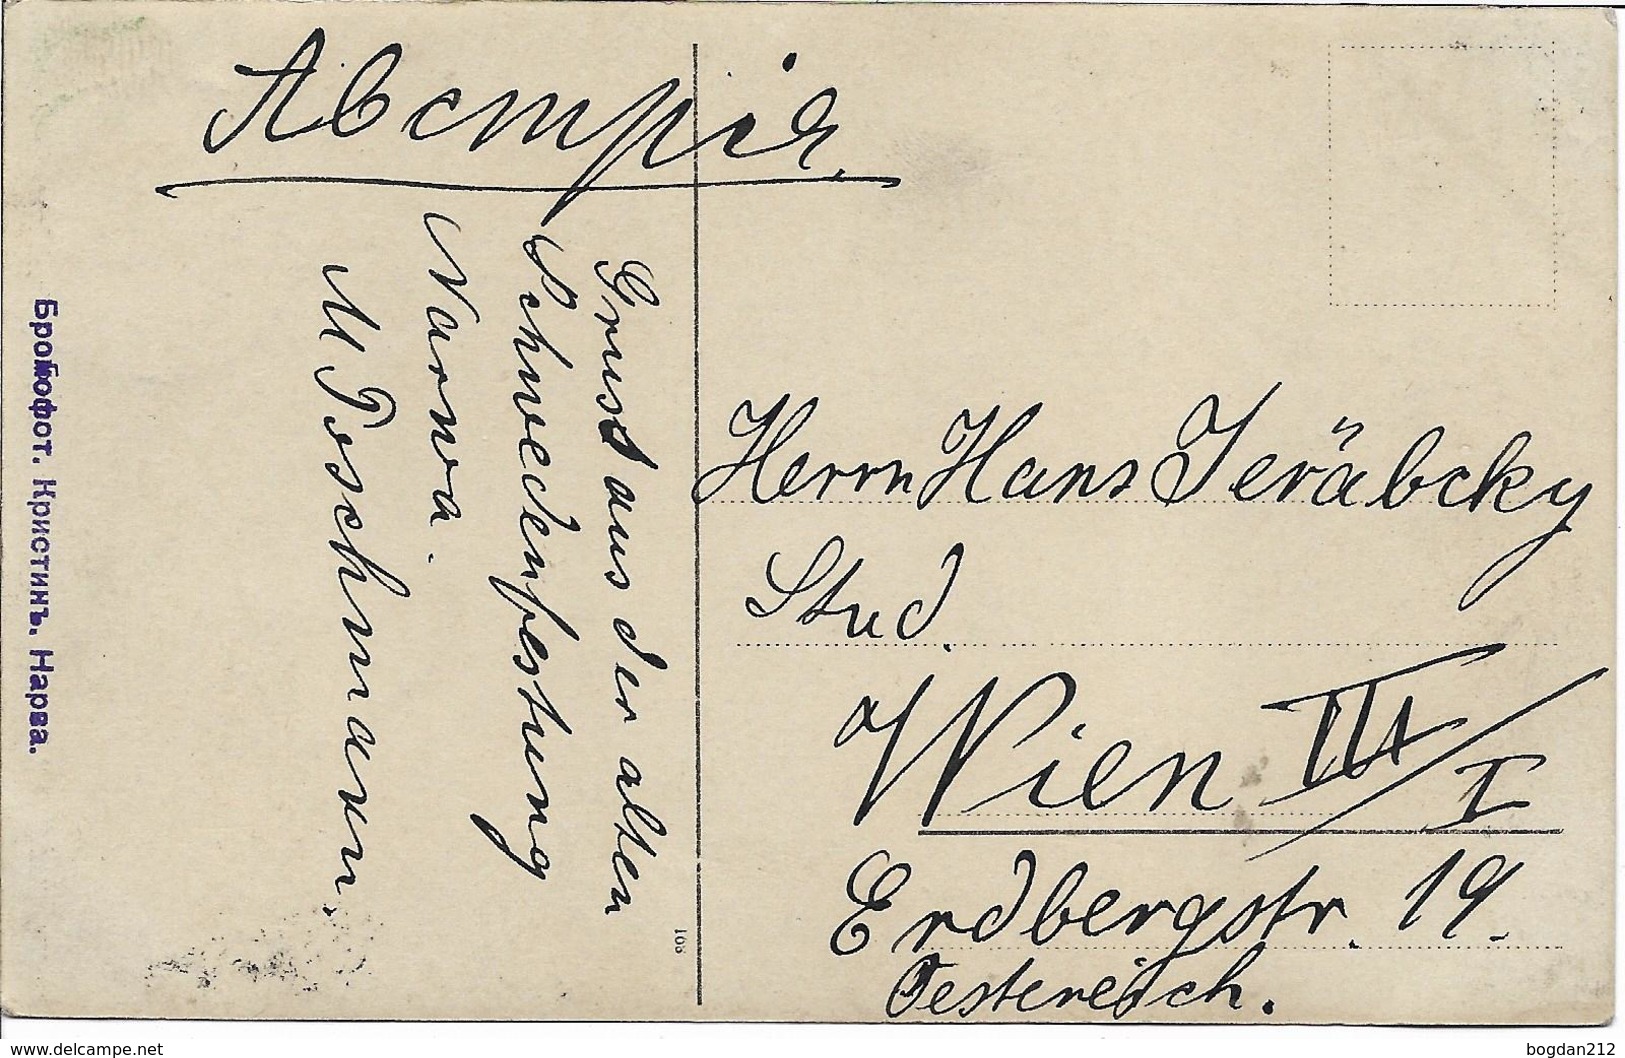 Австрія.
Gruss aus der alten
Schwedenfestung
Narwa.
M Poschmann.
Бромофот. Кристинъ. Нарва.
108
Herrn Hans Jeräbcky
Stud.
Wien III/I
Erdbergstr. 19.
Oestereich.
www.delcampe.net
bogdan212